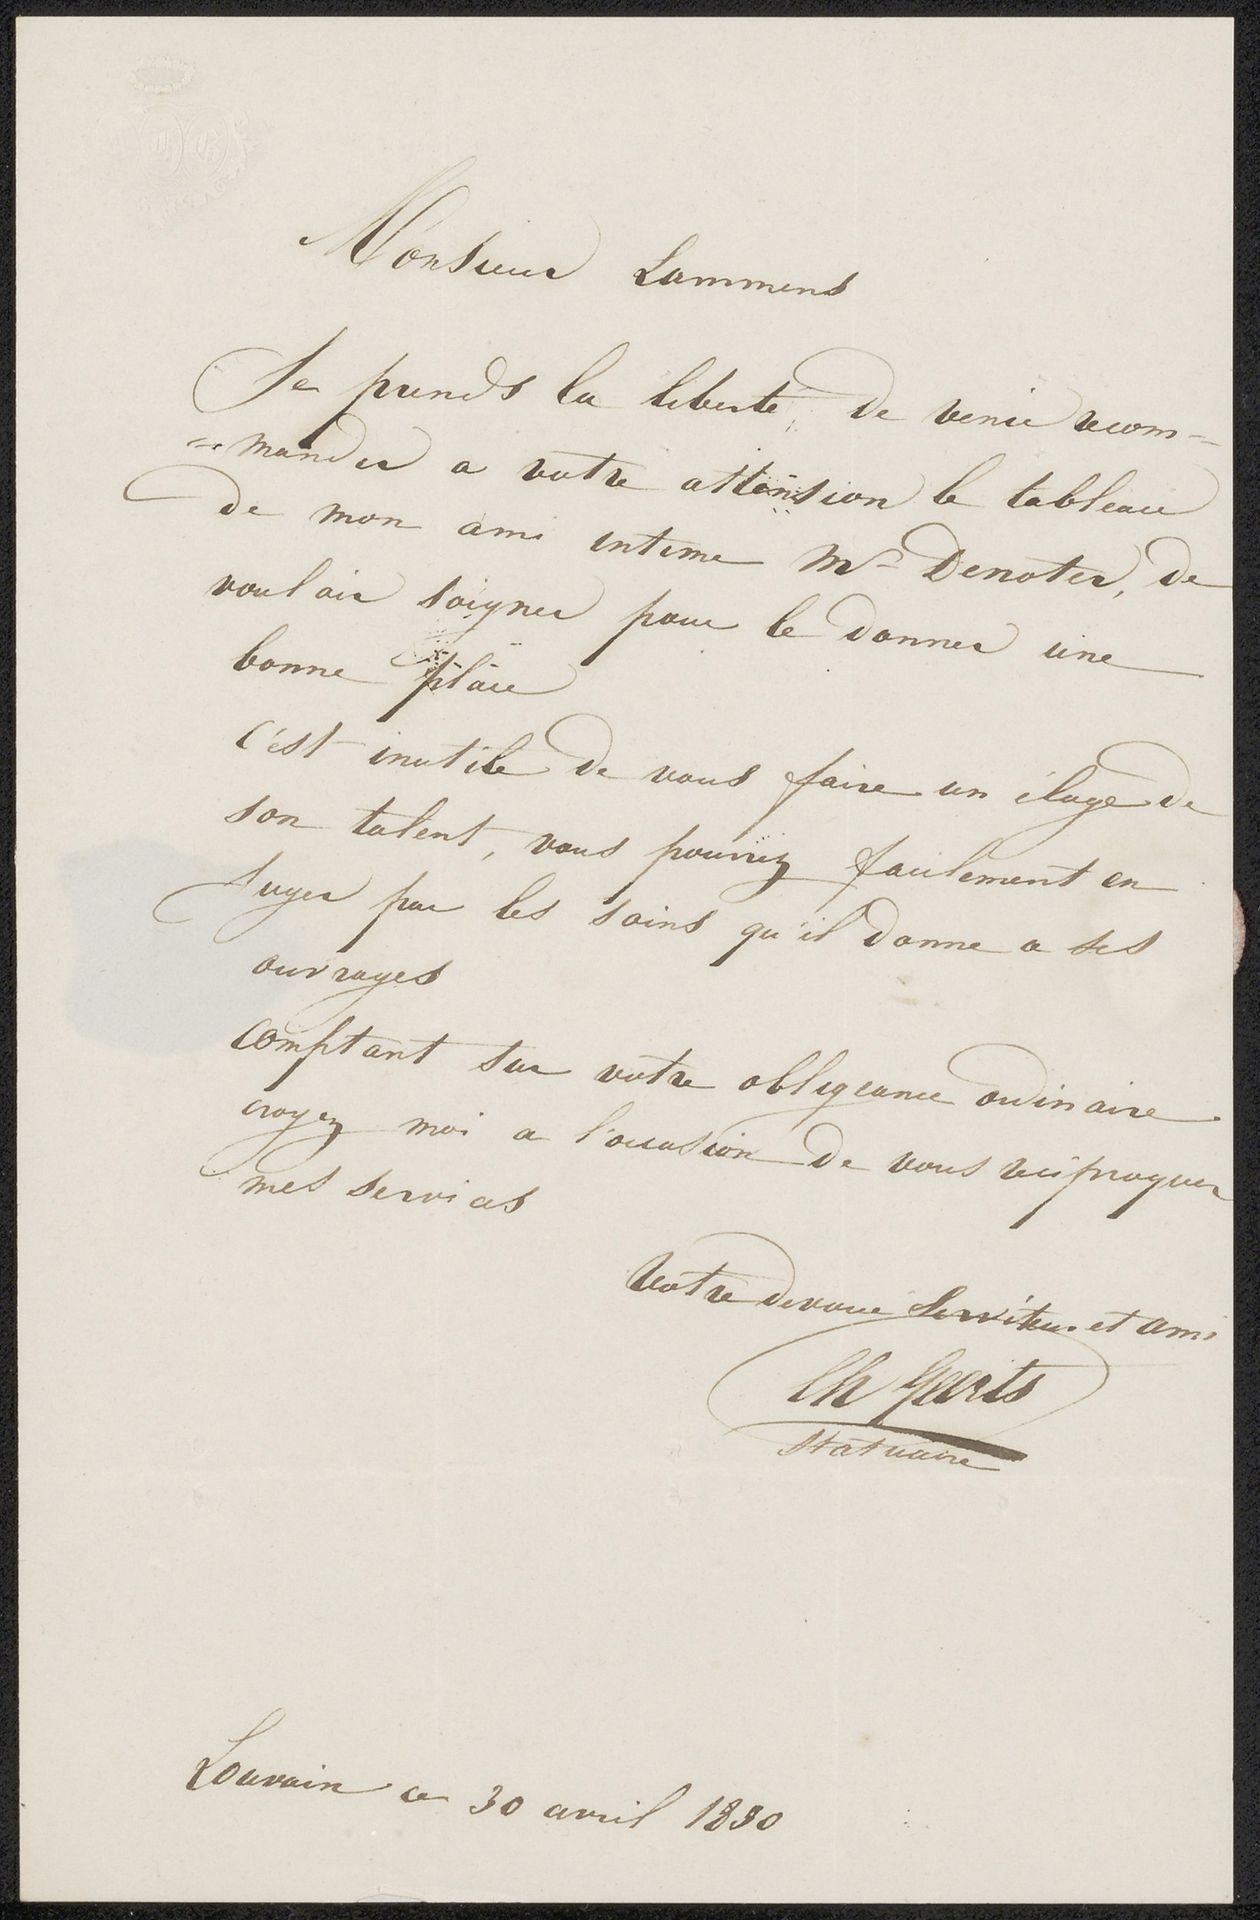 Monsieur Lammens
Je prends la liberté, de venir recom=
=mander a votre attension le tableau
de mon ami intime Mr Denoter, de
vouloir soigner pour le donner une
bonne place
c'est inutile de vous faire un éloge de
son talent, vous pourrez facilement en
juger par les soins qu'il donne a ses
ouvrages
comptant sur votre obligeance ordinaire
croyez moi a l'occasion de vous reciproquer
mes services
Votre devoué serviteur et ami
Ch Geerts
statuaire
Louvain ce 30 avril 1850